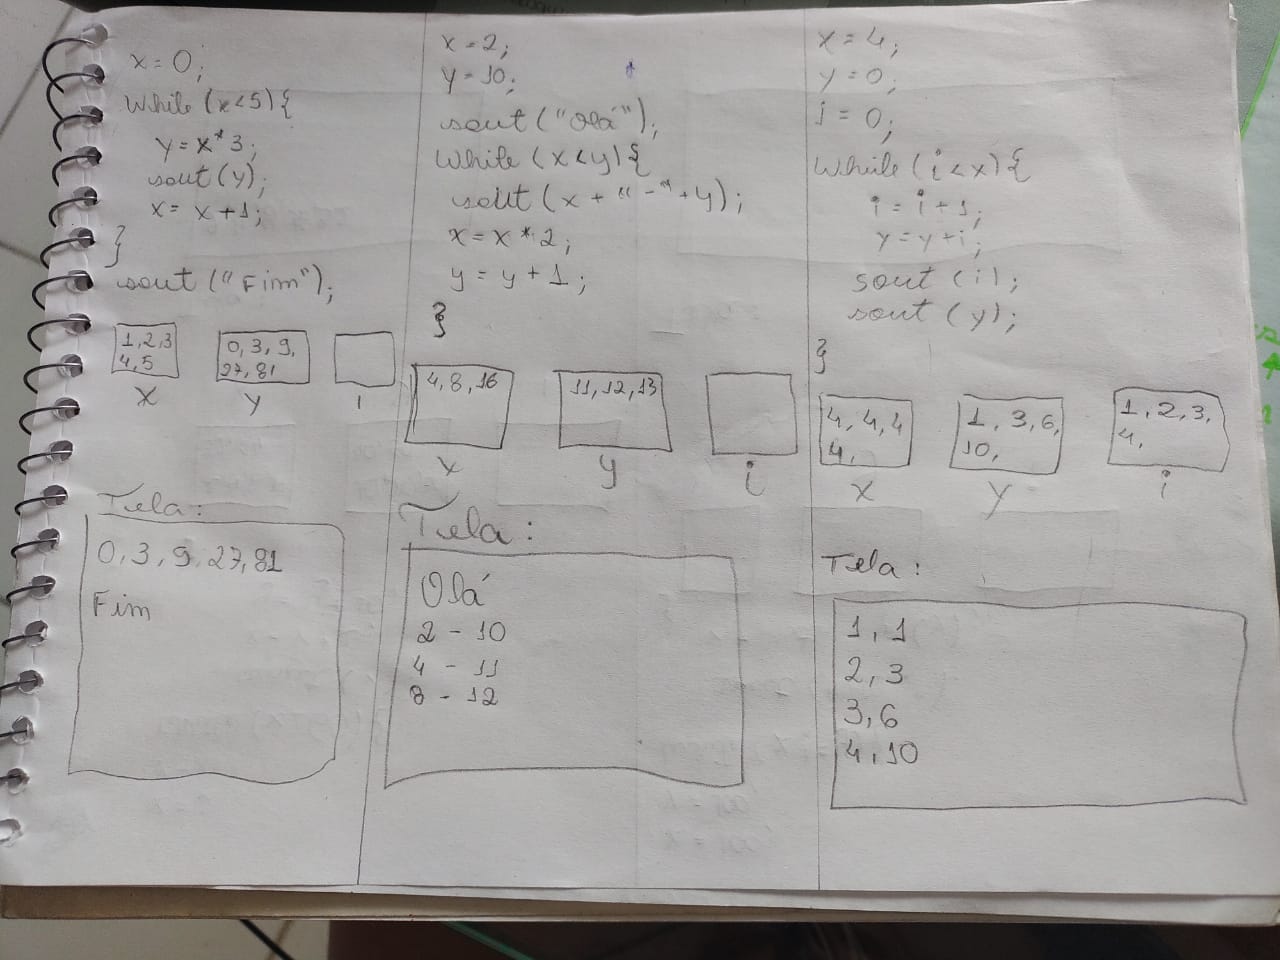 x=0;
while (x<5){
y=x*3;
sout(y);
x= x+1;
}
sout ("Fim");
1,2,3
4,5
x
0, 3, 9,
27, 81
y
i
Tela:
0, 3, 9, 27, 81
Fim
x=2;
y=10;
sout ("Olá");
while (x<y){
sout (x + "-" + y);
x=x*2;
y= y + 1;
}
4, 8, 16
x
11, 12, 13
y
i
Tela:
Olá
2 - 10
4 - 11
8 - 12
x=4;
y=0;
i=0;
while (i<x){
i=i+1;
y=y+i;
sout (i);
sout (y);
}
4, 4, 4
4,
x
1, 3, 6,
10,
y
1, 2, 3,
4,
i
Tela:
1, 1
2, 3
3, 6
4, 10